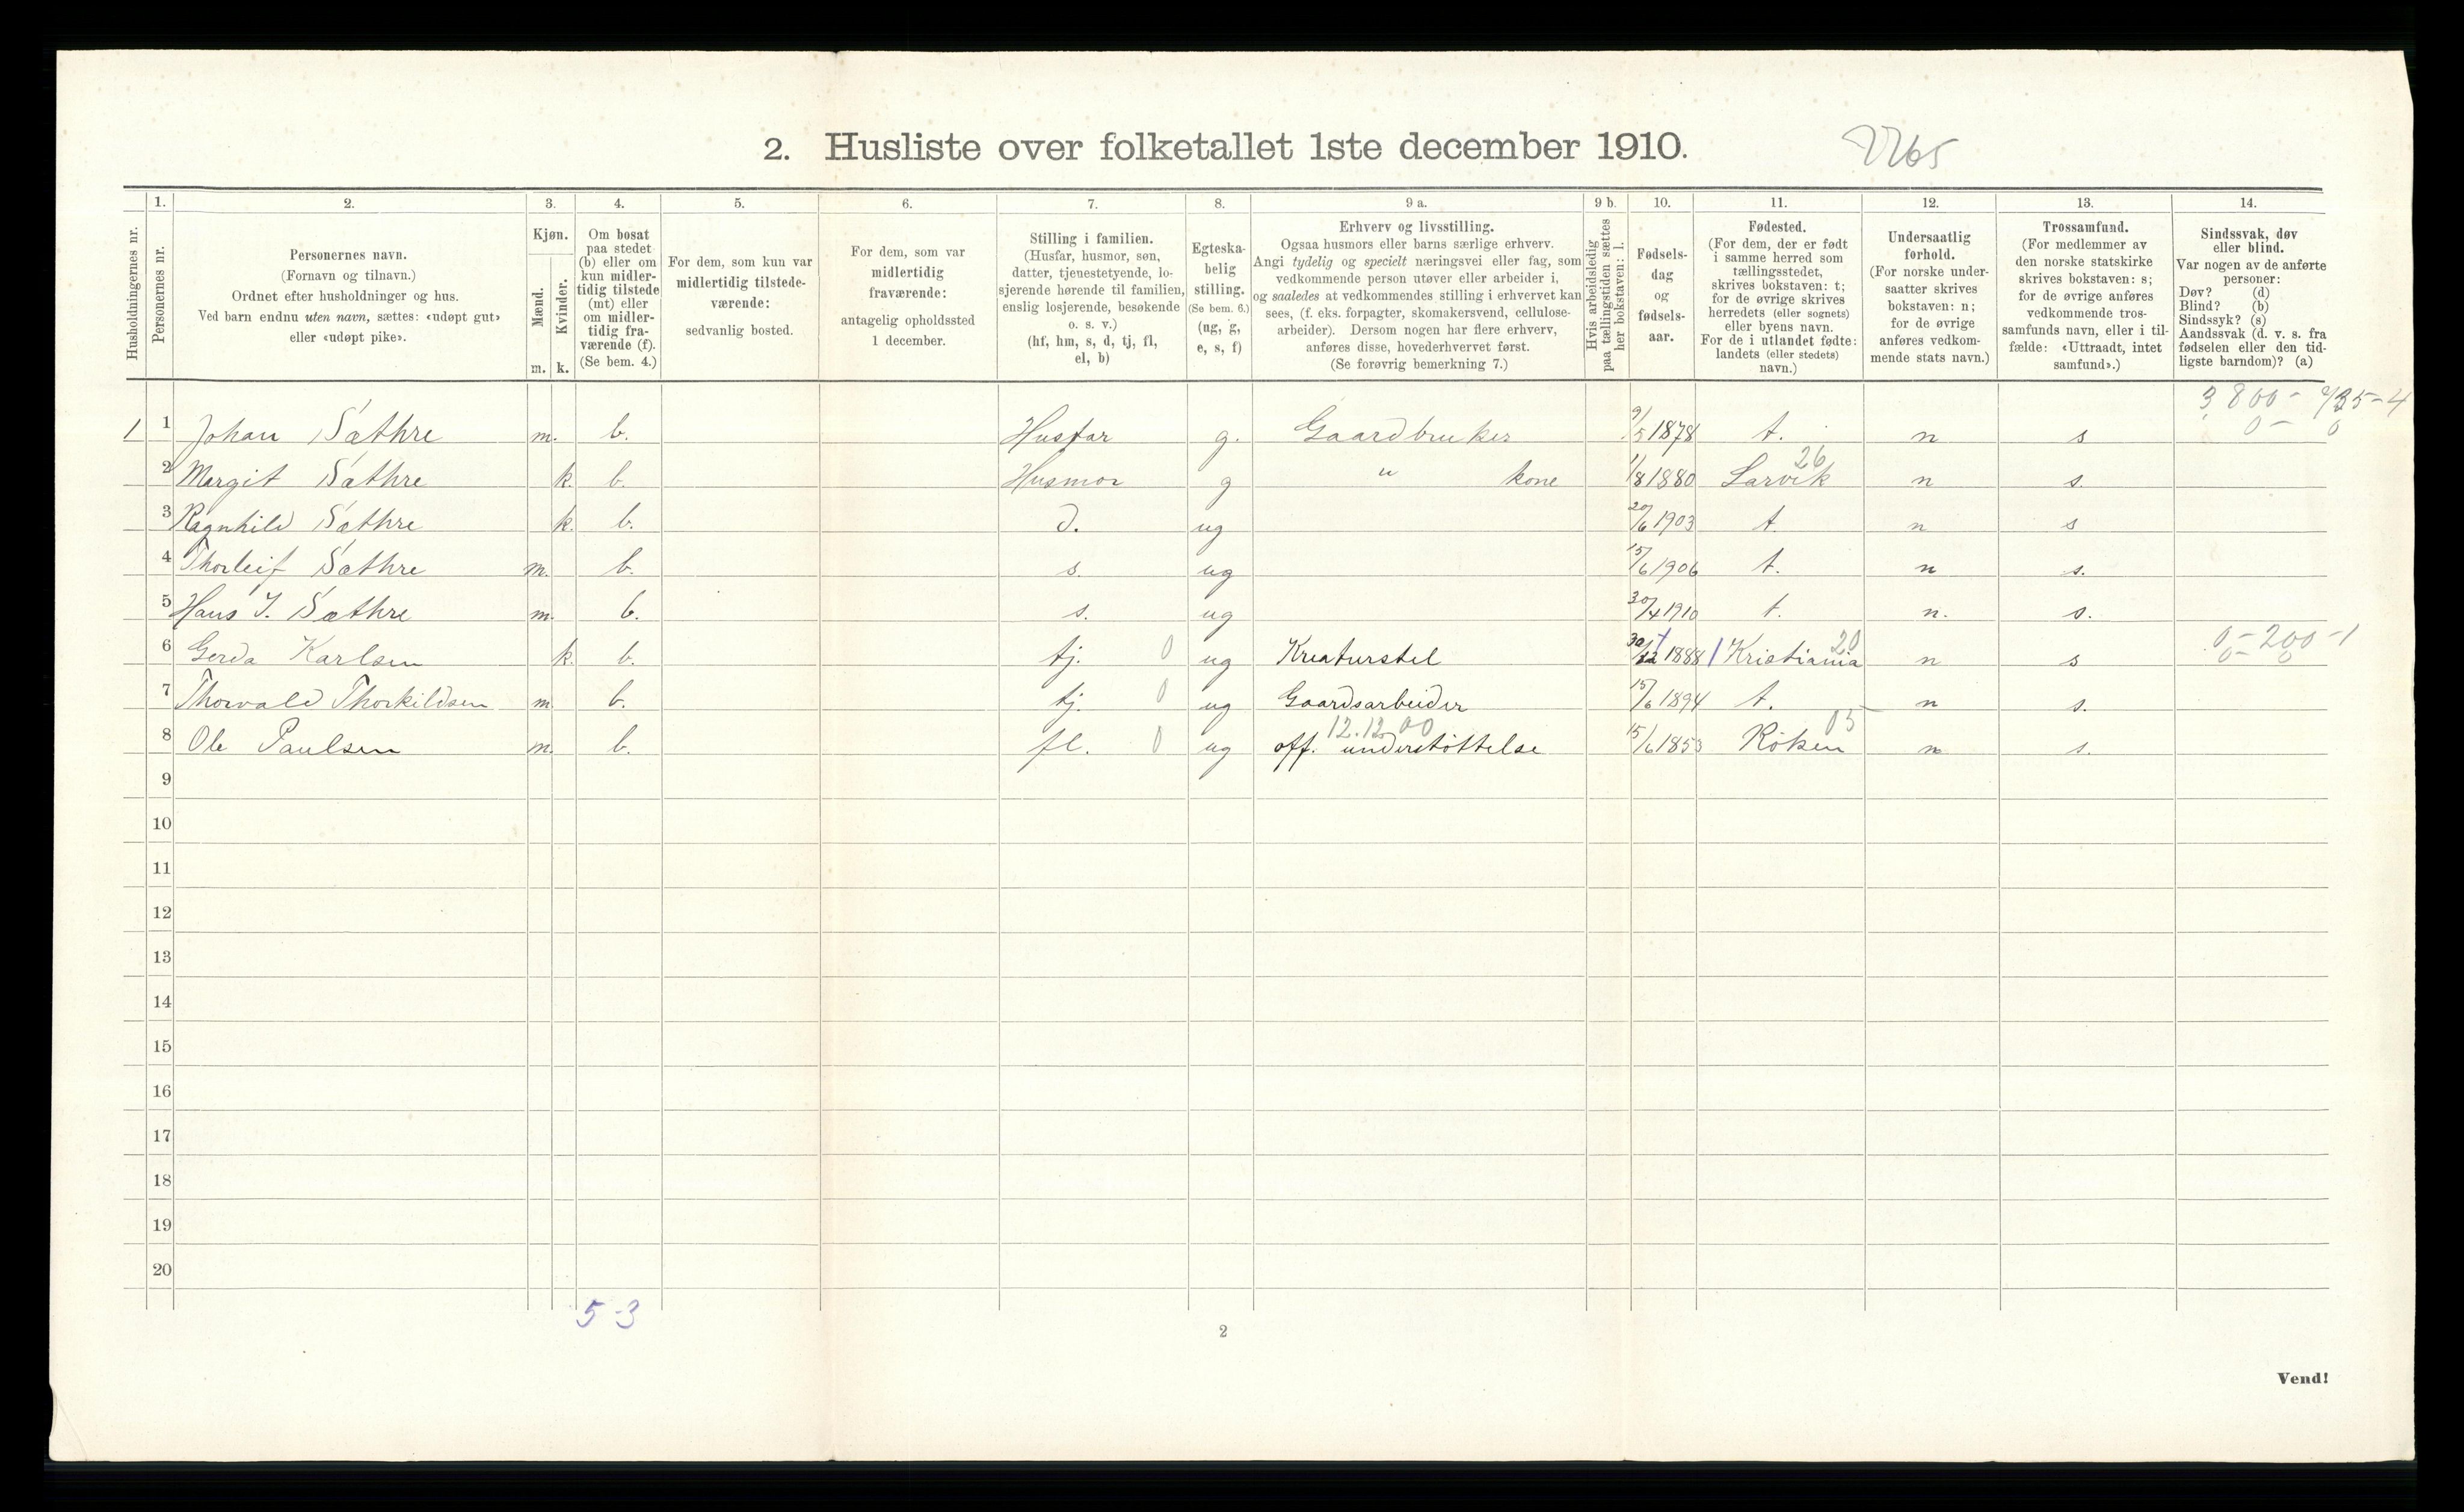 2. Husliste over folketallet 1ste december 1910.
Husholdningernes nr.
1.
Personernes nr.
2.
Personernes navn.
(Fornavn og tilnavn.)
Ordnet efter husholdninger og hus.
Ved barn endnu uten navn, sættes: «udøpt gut»
eller «udøpt pike».
3.
Kjøn.
Mænd.
Kvinder.
m. k.
4.
Om bosat
paa stedet
(b) eller om
kun midler-
tidig tilstede
(mt) eller
om midler-
tidig fra-
værende (f).
(Se bem. 4.)
5.
For dem, som kun var
midlertidig tilstede-
værende:
sedvanlig bosted.
6.
For dem, som var
midlertidig
fraværende:
antagelig opholdssted
1 december.
7.
Stilling i familien.
(Husfar, husmor, søn,
datter, tjenestetyende, lo-
sjerende hørende til familien,
enslig losjerende, besøkende
o. s. v.)
(hf, hm, s, d, tj, fl,
el, b)
8.
Egteska-
belig
stilling.
(Se bem. 6.)
(ug, g,
e, s, f)
9 a.
Erhverv og livsstilling.
Ogsaa husmors eller barns særlige erhverv.
Angi tydelig og specielt næringsvei eller fag, som
vedkommende person utøver eller arbeider i,
og saaledes at vedkommendes stilling i erhvervet kan
sees, (f. eks. forpagter, skomakersvend, cellulose-
arbeider). Dersom nogen har flere erhverv,
anføres disse, hovederhvervet først.
(Se forøvrig bemerkning 7.)
9 b.
Hvis arbeidsledig
paa tællingstiden sættes
her bokstaven: l.
10.
Fødsels-
dag
og
fødsels-
aar.
11.
Fødested.
(For dem, der er født
i samme herred som
tællingsstedet,
skrives bokstaven: t;
for de øvrige skrives
herredets (eller sognets)
eller byens navn.
For de i utlandet fødte:
landets (eller stedets)
navn.)
12.
Undersaatlig
forhold.
(For norske under-
saatter skrives
bokstaven: n;
for de øvrige
anføres vedkom-
mende stats navn.)
13.
Trossamfund.
(For medlemmer av
den norske statskirke
skrives bokstaven: s;
for de øvrige anføres
vedkommende tros-
samfunds navn, eller i til-
fælde: «Uttraadt, intet
samfund».)
14.
Sindssvak, døv
eller blind.
Var nogen av de anførte
personer:
Døv? (d)
Blind? (b)
Sindssyk? (s)
Aandssvak (d. v. s. fra
fødselen eller den tid-
ligste barndom)? (a)
1 1 Johan Sæthre m. b. Husfar g. Gaardbruker 9/5 1878 t. n s 0 - 0
2 Margit Sæthre k. b. Husmor g " kone 1/8 1880 Larvik 26 n s.
3 Ragnhild Sæthre k. b. d. ug 20/6 1903 t. n s
4 Thorleif Sæthre m. b. s. ug 15/6 1906 t. n s.
5 Hans J. Sæthre m. b. s. ug 30/4 1910 t. n. s.
6 Gerda Karlsen k. b. tj. 0 ug Kreaturstel 30/12 1888 Kristiania 20 n s 0 - 200 - 1
0 - 0
7 Thorvald Thorkildsen m. b. tj. 0 ug Gaardsarbeider 15/6 1894 t. n s.
12.12.00
8 Ole Paulsen m. b. fl. 0 ug off. understøttelse 15/6 1853 Röken 05 n s.
9
10
11
12
13
14
15
16
17
18
19
20
5-3
2
Vend!